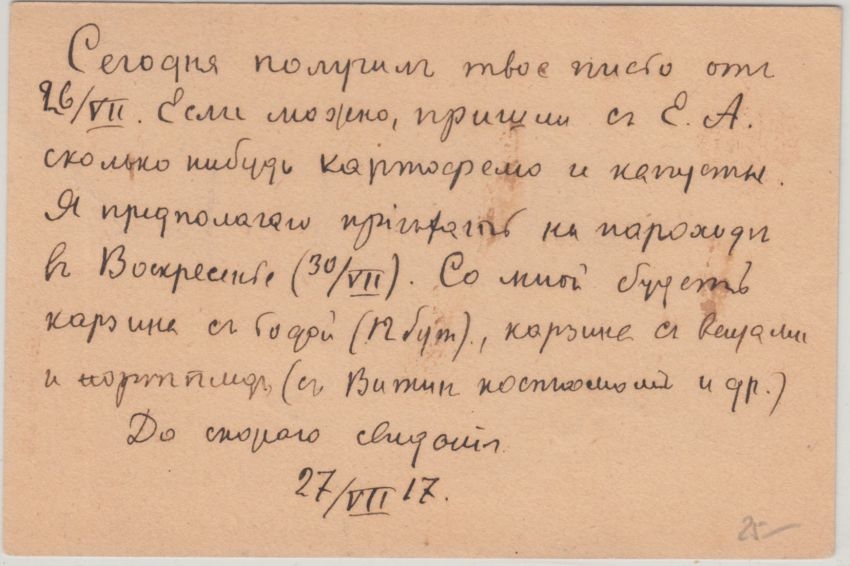 Сегодня получилъ твое письмо отъ
26/VII. Если можно, пришли съ Е. А.
сколько нибудь картофелю и капусты.
Я предполагаю пріѣхать на пароходѣ
въ Воскресенье (30/VII). Со мной будетъ
карзина съ водой (12 бут), карзина съ вещами
и портпледъ (съ Витин костюмомъ и др.)
До скораго свиданія
27/VII 17.
25-